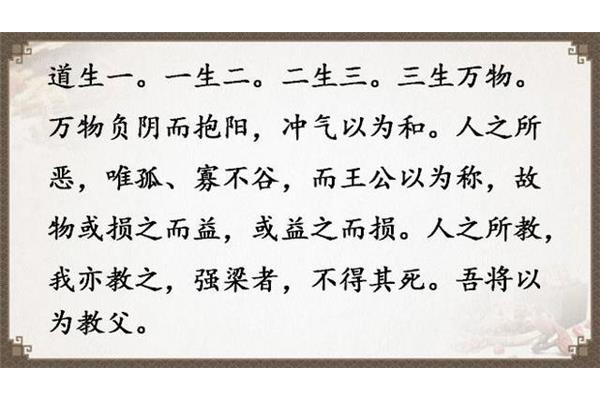 道生一。一生二。二生三。三生万物。
万物负阴而抱阳，冲气以为和。人之所
恶，唯孤、寡不谷，而王公以为称，故
物或损之而益，或益之而损。人之所教，
我亦教之，强梁者，不得其死。吾将以
为教父。